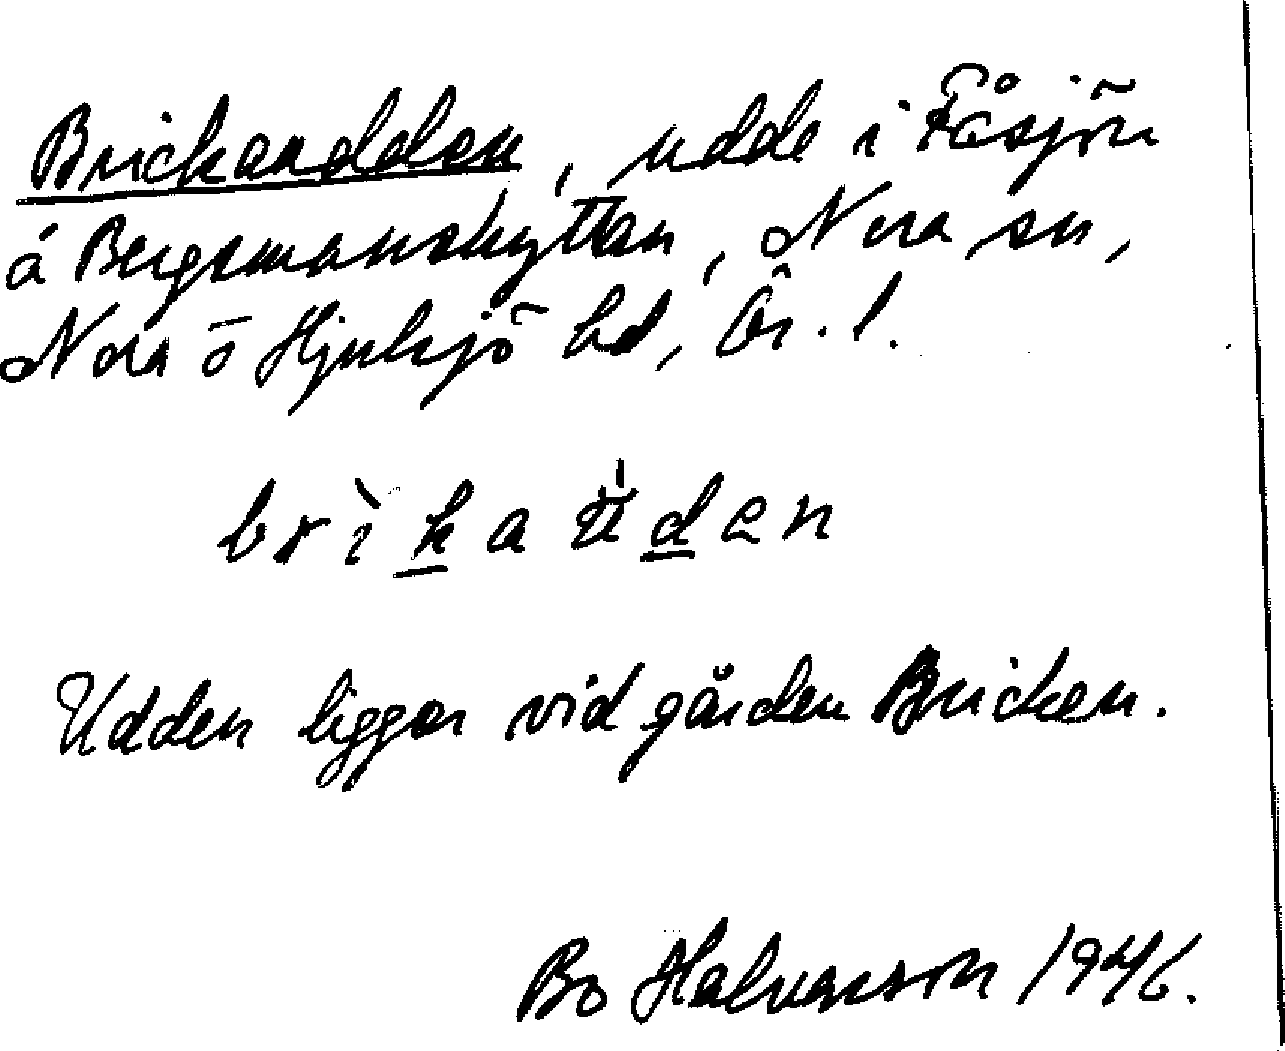 Brickaudden, udde i Fåsjön
å Bergsmanshyttan, Nora sn,
Nora o Hjulsjö hd, Ör. l.
brìkaùden
Udden ligger vid gården Bricken.
Bo Halvarsson 1946.